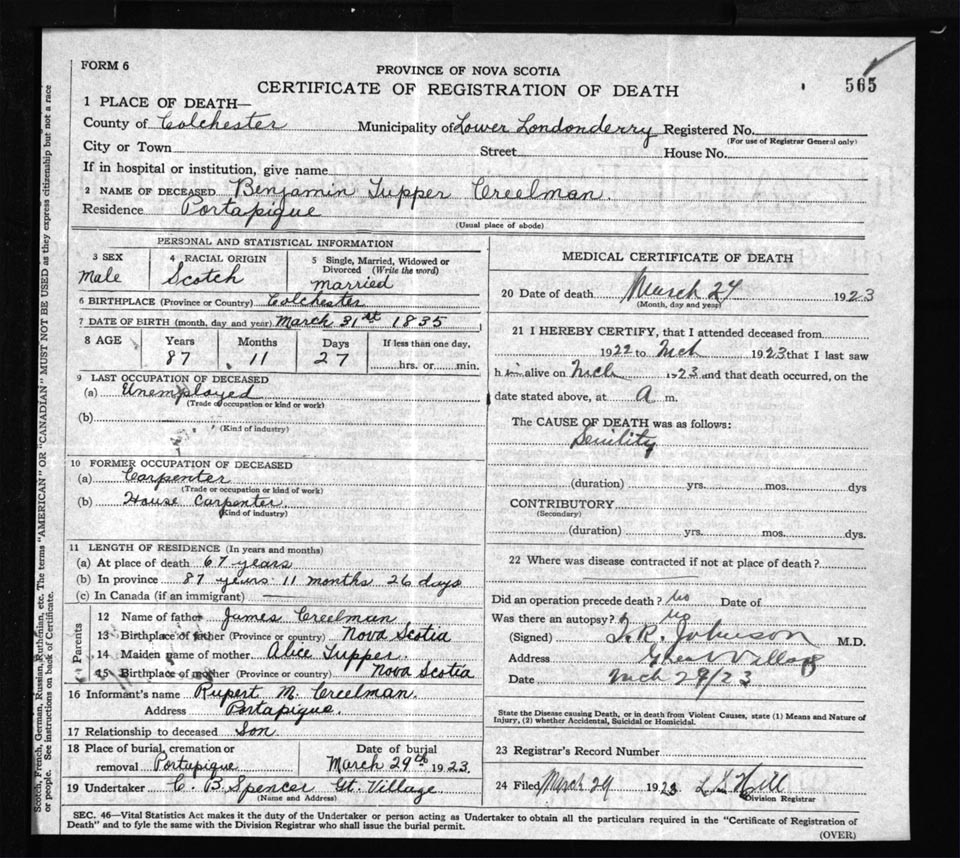 FORM 6
PROVINCE OF NOVA SCOTIA
565
CERTIFICATE OF REGISTRATION OF DEATH
1 PLACE OF DEATH—
County of Colchester Municipality of Lower Londonderry Registered No.
(For use of Registrar General only)
City or Town Street House No.
If in hospital or institution, give name
2 NAME OF DECEASED Benjamin Tupper Creelman.
Residence Portapique
(Usual place of abode)
PERSONAL AND STATISTICAL INFORMATION
3 SEX Male
4 RACIAL ORIGIN Scotch
5 Single, Married, Widowed or Divorced (Write the word) Married
6 BIRTHPLACE (Province or Country) Colchester
7 DATE OF BIRTH (month, day and year) March 31st 1835
8 AGE Years Months Days If less than one day,
87 11 27 hrs. or min.
9 LAST OCCUPATION OF DECEASED
(a) Unemployed
(Trade or occupation or kind or work)
(b)
(Kind of industry)
10 FORMER OCCUPATION OF DECEASED
(a) Carpenter
(Trade or occupation or kind of work)
(b) House Carpenter
(Kind of industry)
11 LENGTH OF RESIDENCE (In years and months)
(a) At place of death 67 years
(b) In province 87 years 11 months 26 days
(c) In Canada (if an immigrant)
Parents
12 Name of father James Creelman
13 Birthplace of father (Province or country) Nova Scotia
14 Maiden name of mother Alice Tupper
15 Birthplace of mother (Province or country) Nova Scotia
16 Informant's name Rupert M. Creelman.
Address Portapique.
17 Relationship to deceased Son
18 Place of burial, cremation or removal Portapique
Date of burial March 29th 1923.
19 Undertaker C. B. Spencer Gt. Village
(Name and Address)
MEDICAL CERTIFICATE OF DEATH
20 Date of death March 27 1923
(Month, day and year)
21 I HEREBY CERTIFY, that I attended deceased from
1922 to Mch 1923 that I last saw
him alive on Mch 1923 and that death occurred, on the
date stated above, at A m.
The CAUSE OF DEATH was as follows:
Senility
(duration) yrs. mos. dys
CONTRIBUTORY
(Secondary)
(duration) yrs. mos. dys.
22 Where was disease contracted if not at place of death?
Did an operation precede death? No Date of
Was there an autopsy? No
(Signed) T. R. Johnson M.D.
Address Great Village
Date Mch 29/23
State the Disease causing Death, or in death from Violent Causes, state (1) Means and Nature of
Injury, (2) whether Accidental, Suicidal or Homicidal.
23 Registrar's Record Number
24 Filed March 29 1923 L S Hill
Division Registrar
SEC. 46—Vital Statistics Act makes it the duty of the Undertaker or person acting as Undertaker to obtain all the particulars required in the "Certificate of Registration of
Death" and to fyle the same with the Division Registrar who shall issue the burial permit.
(OVER)
Scotch, French, German, Russian, Ruthenian, etc. The terms "AMERICAN" OR "CANADIAN" MUST NOT BE USED as they express citizenship but not a race
or people. See instructions on back of Certificate.